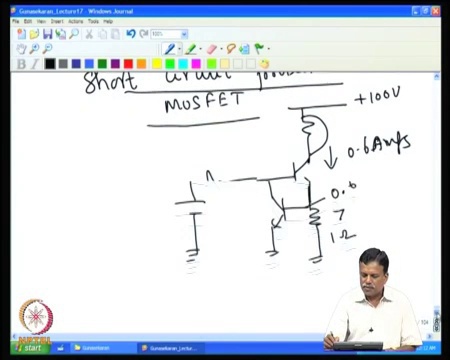 Gunasekaran_Lecture17 - Windows Journal
File Edit View Insert Actions Tools Help
100%
B I
Short circuit
MOSFET
+100V
0.6 Amps
0.6
7
1Ω
NPTEL
start
Gunasekaran
Gunasekaran_Lectu...